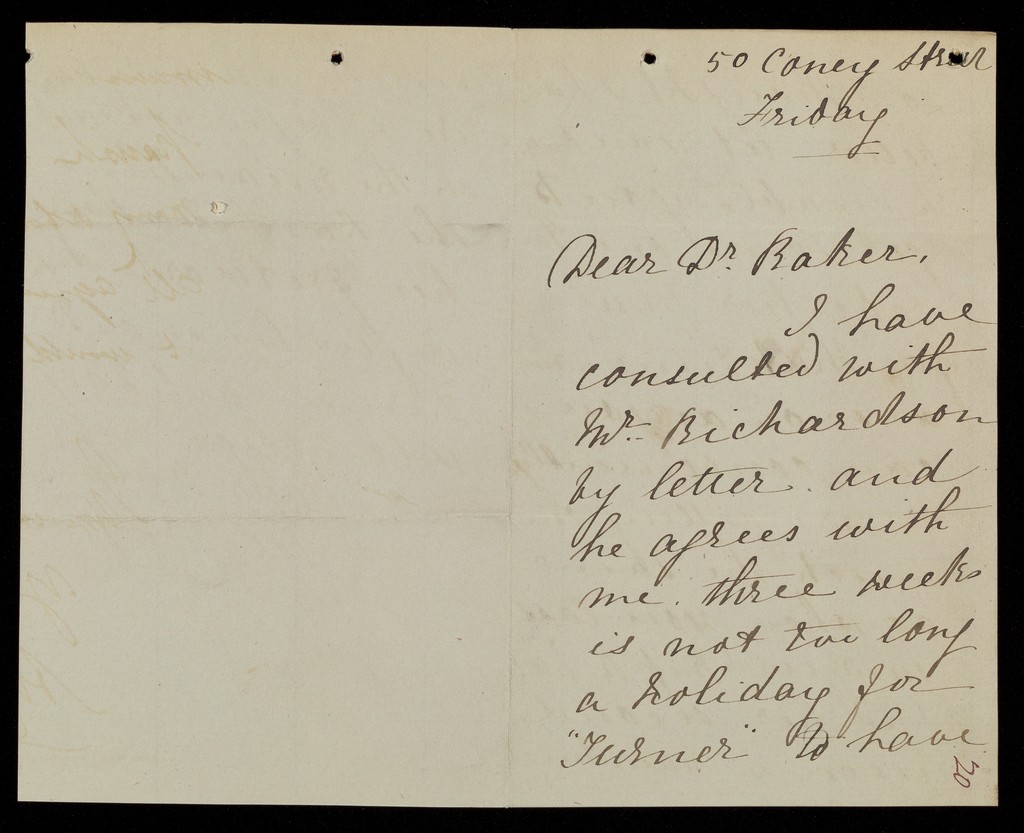 50 Coney Street
Friday
Dear Dr. Baker,
I have
consulted with
Mr. Richardson
by letter. and
he agrees with
me. three weeks
is not too long
a holiday for
"Turner" to have
20